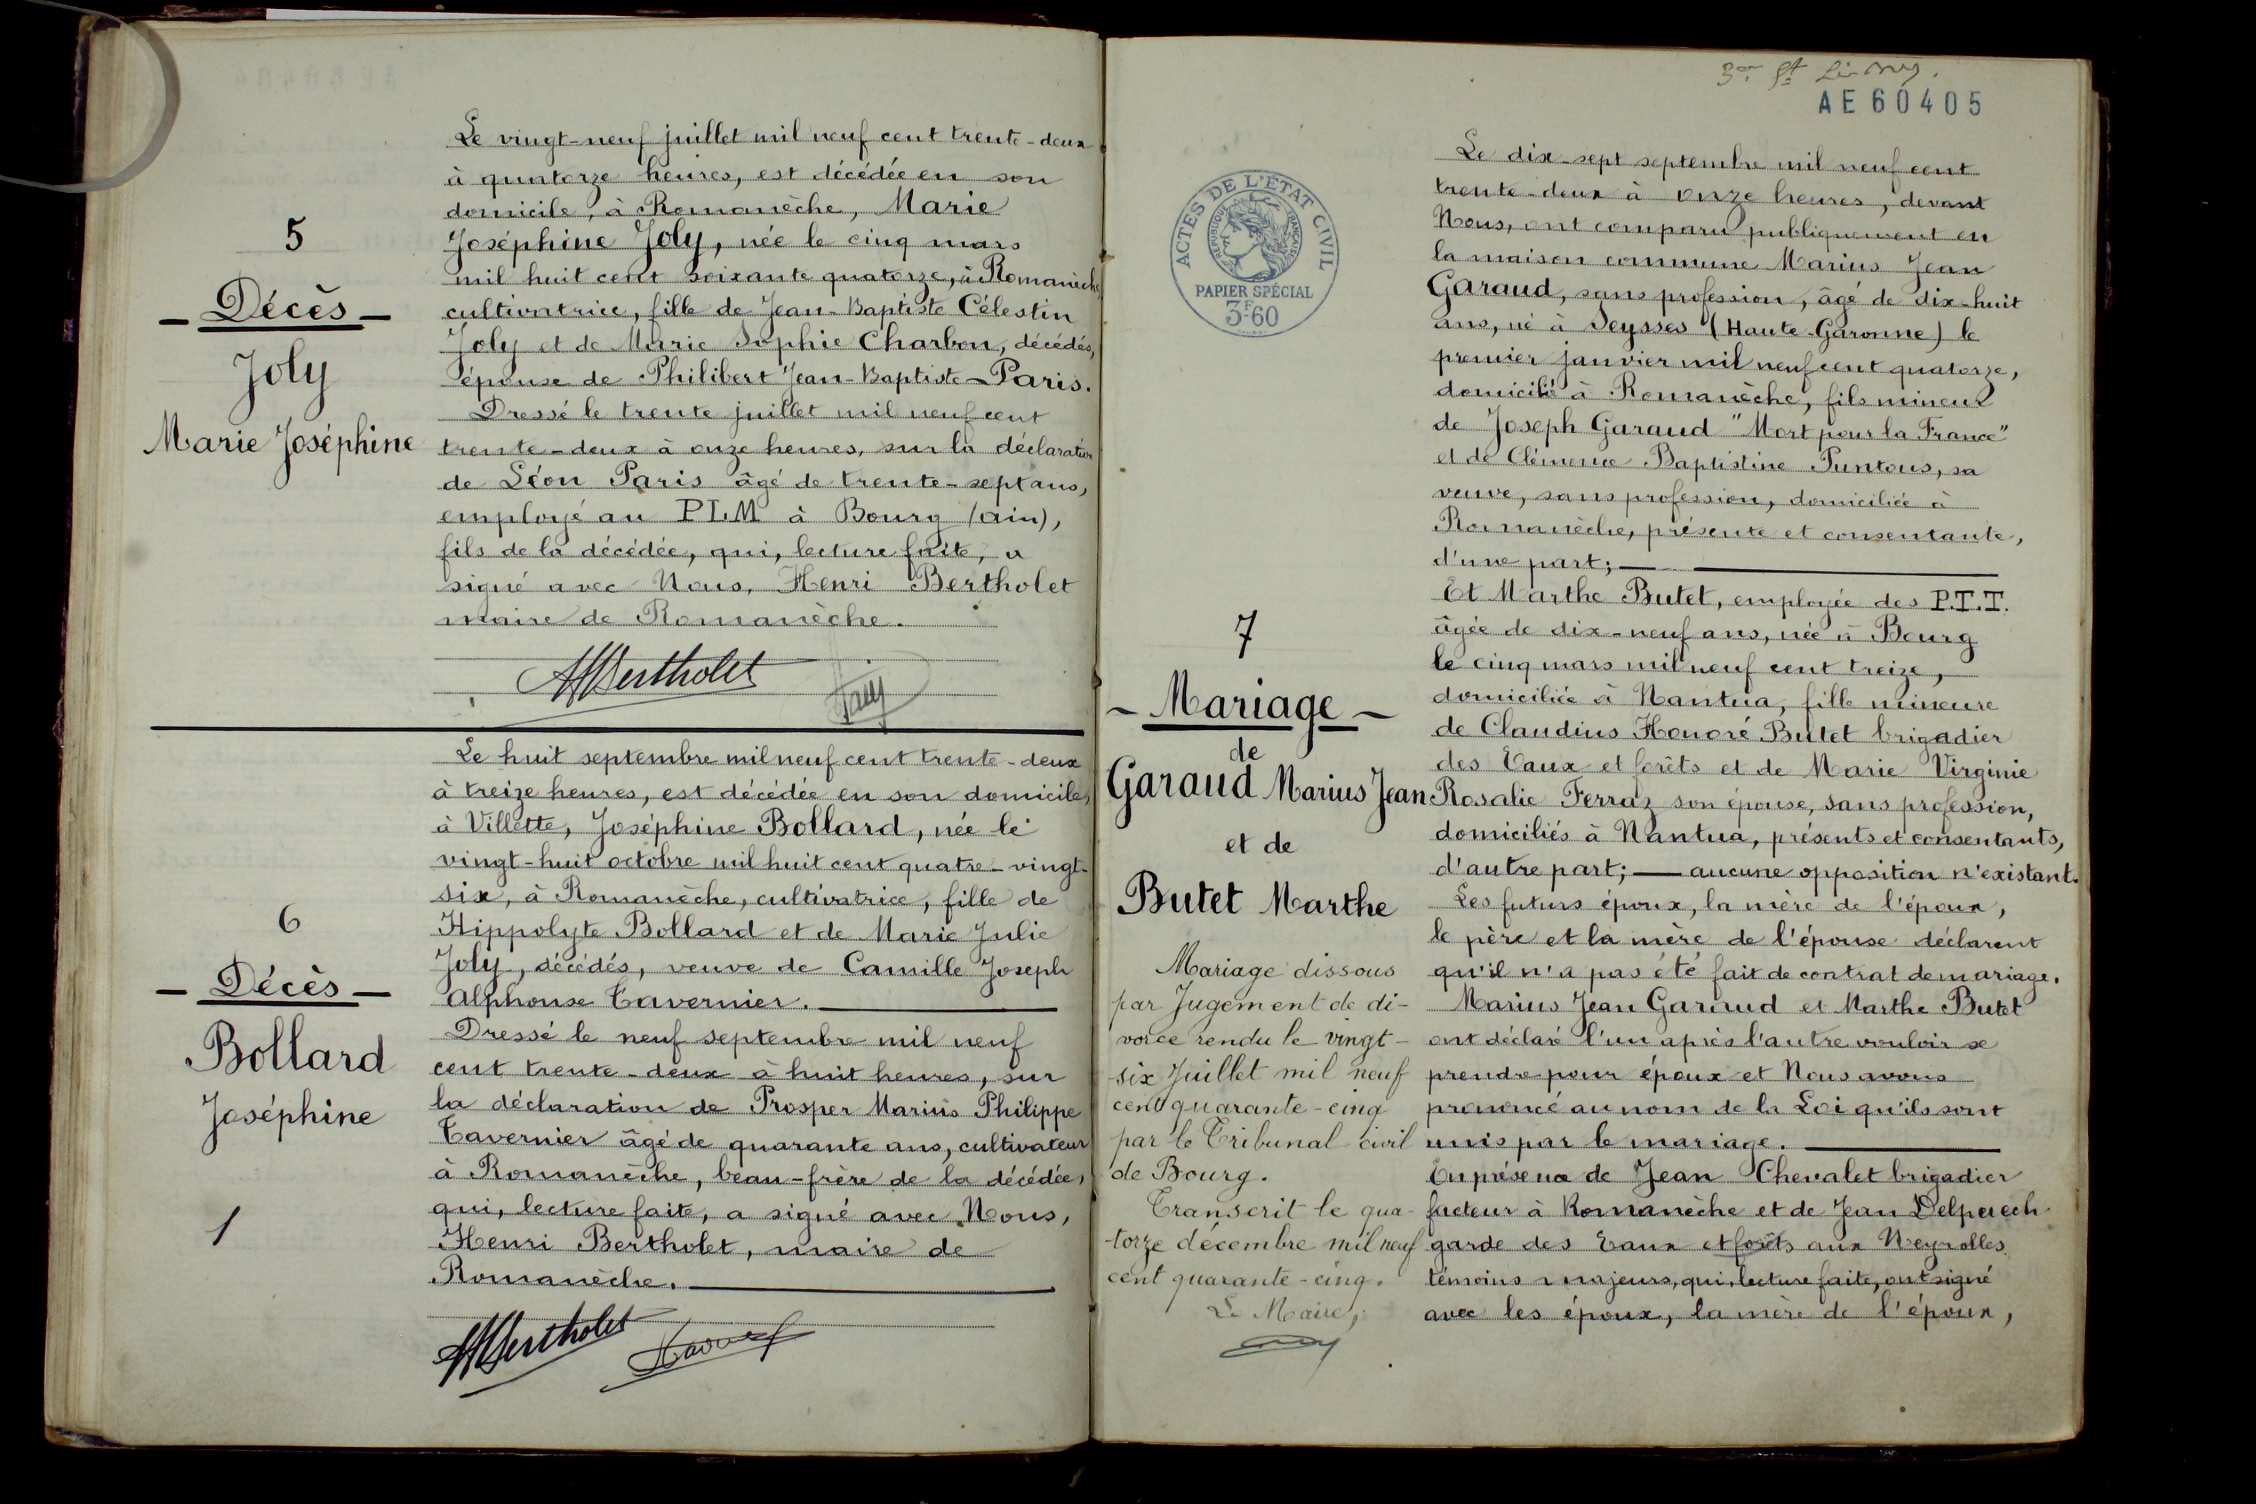 5
Décès
Joly
Marie Joséphine
Le vingt-neuf juillet mil neuf cent trente-deux
à quatorze heures, est décédée en son
domicile, à Romanèche, Marie
Joséphine Joly, née le cinq mars
mil huit cent soixante quatorze, à Romanèche
cultivatrice, fille de Jean-Baptiste Célestin
Joly et de Marie Sophie Charbon, décédés,
épouse de Philibert Jean-Baptiste Paris.
Dressé le trente juillet mil neuf cent
trente-deux à onze heures, sur la déclaration
de Léon Paris âgé de trente-sept ans,
employé au PLM à Bourg (ain),
fils de la décédée, qui, lecture faite, a
signé avec Nous, Henri Bertholet
maire de Romanèche.
HBertholet
6
Décès
Bollard
Joséphine
1
Le huit septembre mil neuf cent trente-deux
à treize heures, est décédée en son domicile,
à Villette, Joséphine Bollard, née le
vingt-huit octobre mil huit cent quatre-vingt-
six, à Romanèche, cultivatrice, fille de
Hippolyte Bollard et de Marie Julie
Joly, décédés, veuve de Camille Joseph
Alphonse Tavernier.
Dressé le neuf septembre mil neuf
cent trente-deux à huit heures, sur
la déclaration de Prosper Marius Philippe
Tavernier âgé de quarante ans, cultivateur
à Romanèche, beau-frère de la décédée,
qui, lecture faite, a signé avec Nous,
Henri Bertholet, maire de
Romanèche.
HBertholet
AE60405
ACTES DE L'ÉTAT CIVIL
RÉPUBLIQUE FRANÇAISE
PAPIER SPÉCIAL
3F60
7
Mariage
de
Garaud Marius Jean
et de
Butet Marthe
Mariage dissous
par Jugement de di-
vorce rendu le vingt-
six Juillet mil neuf
cent quarante-cinq
par le Tribunal civil
de Bourg.
Transcrit le qua-
torze décembre mil neuf
cent quarante-cinq.
Le Maire,
Le dix-sept septembre mil neuf cent
trente-deux à onze heures, devant
Nous, ont comparu publiquement en
la maison commune Marius Jean
Garaud, sans profession, âgé de dix-huit
ans, né à Seysses (Haute-Garonne) le
premier janvier mil neuf cent quatorze,
domicilié à Romanèche, fils mineur
de Joseph Garaud "Mort pour la France"
et de Clémence Baptistine Puntous, sa
veuve, sans profession, domiciliée à
Romanèche, présente et consentante,
d'une part;
Et Marthe Butet, employée des P.T.T.
âgée de dix-neuf ans, née à Bourg
le cinq mars mil neuf cent treize,
domiciliée à Nantua, fille mineure
de Claudius Honoré Butet brigadier
des Eaux et forêts et de Marie Virginie
Rosalie Ferraz son épouse, sans profession,
domiciliés à Nantua, présents et consentants,
d'autre part; aucune opposition n'existant.
Les futurs époux, la mère de l'époux,
le père et la mère de l'épouse déclarent
qu'il n'a pas été fait de contrat de mariage.
Marius Jean Garaud et Marthe Butet
ont déclaré l'un après l'autre vouloir se
prendre pour époux et Nous avons
prononcé au nom de la Loi qu'ils sont
unis par le mariage.
En présence de Jean Chevalet brigadier
facteur à Romanèche et de Jean Delpuech
garde des Eaux et forêts aux Neyrolles
témoins majeurs, qui, lecture faite, ont signé
avec les époux, la mère de l'époux,